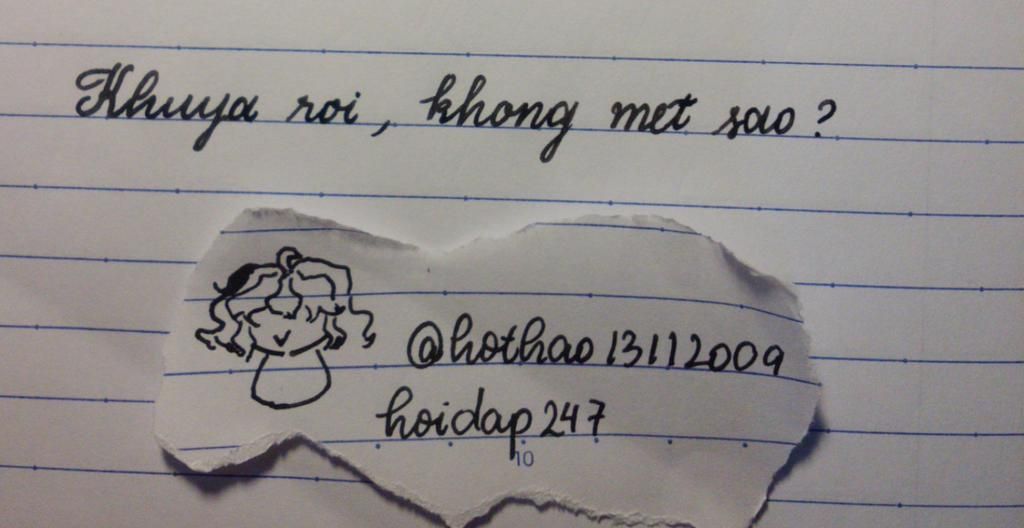 Khuya roi, khong met sao?
@hothao13112009
hoidap247
10